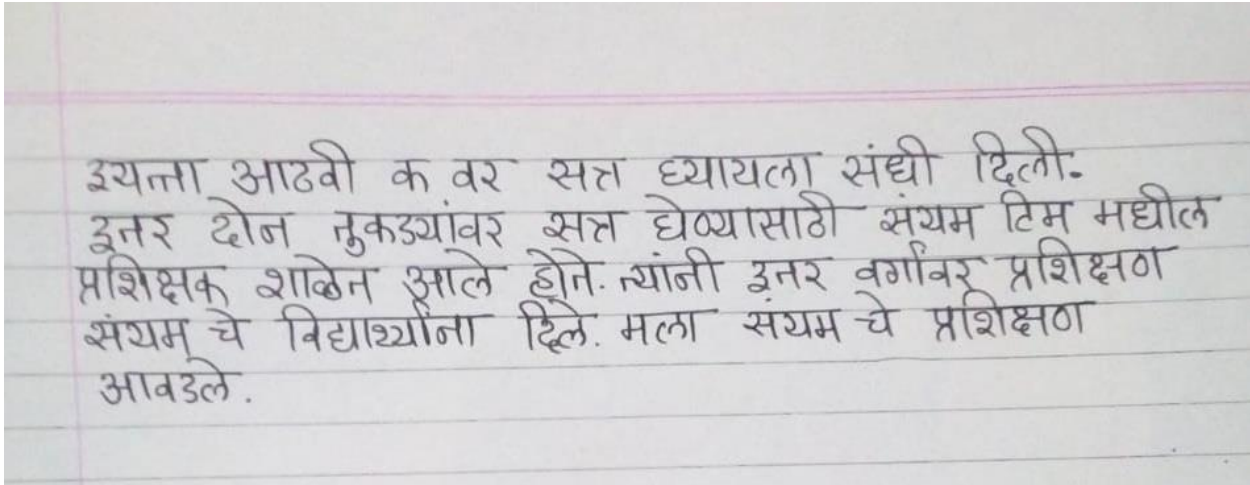 इयत्ता आठवी क वर सत्र घ्यायला संधी दिली.
इतर दोन तुकड्यांवर सत्र घेण्यासाठी संयम टिम मधील
प्रशिक्षक शाळेत आले होते. त्यांनी इतर वर्गांवर प्रशिक्षण
संयम चे विद्यार्थ्यांना दिले. मला संयम चे प्रशिक्षण
आवडले.